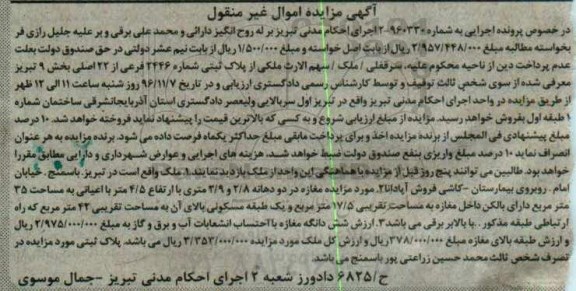 آگهی مزایده اموال غیر منقول
در خصوص پرونده اجرایی به شماره ۹۶۰۳۳۰-۲ اجرای احکام مدنی تبریز بر له روح انگیز دارائی و محمد علی برقی و بر علیه جلیل رازی فر
بخواسته مطالبه مبلغ ۲/۹۵۷/۴۴۸/۰۰۰ ریال از بابت اصل خواسته و مبلغ ۱/۵۰۰/۰۰۰ ریال از بابت نیم عشر دولتی در حق صندوق دولت بعلت
عدم پرداخت دین از ناحیه محکوم علیه، سرقفلی / ملک / سهم الارث ملکی از پلاک ثبتی شماره ۲۴۴۶ فرعی از ۲۲ اصلی بخش ۹ تبریز
معرفی شده از سوی شخص ثالث توقیف و توسط کارشناس رسمی دادگستری ارزیابی و در تاریخ ۹۶/۱۱/۷ روز شنبه ساعت ۱۱ الی ۱۲ ظهر
از طریق مزایده در واحد اجرای احکام مدنی تبریز واقع در تبریز اول سربالایی ولیعصر دادگستری استان آذربایجانشرقی ساختمان شماره
۱ طبقه اول بفروش خواهد رسید. مزایده از مبلغ ارزیابی شروع و به کسی که بالاترین قیمت را پیشنهاد نماید فروخته خواهد شد. ۱۰ درصد
مبلغ پیشنهادی فی المجلس از برنده مزایده اخذ و برای پرداخت مابقی مبلغ حداکثر یکماه فرصت داده می شود. برنده مزایده به هر عنوان
انصراف نماید ۱۰ درصد مبلغ واریزی بنفع صندوق دولت ضبط خواهد شد. هزینه های اجرایی و عوارض شهرداری و دارایی مطابق مقررا
خواهد بود. طالبین می توانند پنج روز قبل از مزایده با هماهنگی این واحد از ملک بازدید نمایند. ۱. ملک واقع است در تبریز. باسمنج. خیابان
امام . روبروی بیمارستان -کاشی فروش آپادانا۲. مورد مزایده مغازه در دو دهانه ۲/۸ و ۳/۹ متری با ارتفاع ۴/۵ متر با اعیانی به مساحت ۳۵
متر مربع دارای بالکن داخل مغازه به مساحت تقریبی ۱۷/۵ متر مربع و یک طبقه مسکونی بالای آن به مساحت تقریبی ۴۲ متر مربع که راه
ارتباطی طبقه مذکور ..با بالابر برقی می باشد۳. ارزش شش دانگه مغازه با احتساب انشعابات آب و برق و گاز به مبلغ ۲/۹۷۵/۰۰۰/۰۰۰ ریال
و ارزش طبقه بالای مغازه مبلغ ۳۷۸/۰۰۰/۰۰۰ ریال و ارزش کل ملک مورد مزایده ۳/۳۵۳/۰۰۰/۰۰۰ ریال می باشد. پلاک ثبتی مورد مزایده در
تصرف شخص ثالث محمد حسین زراعتی پور باسمنج می باشد.
ح/۶۸۲۵ دادورز شعبه ۲ اجرای احکام مدنی تبریز -جمال موسوی